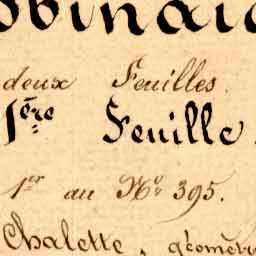 deux Feuilles.
1ère Feuille.
1er au No 395.
Chalette, géomètr